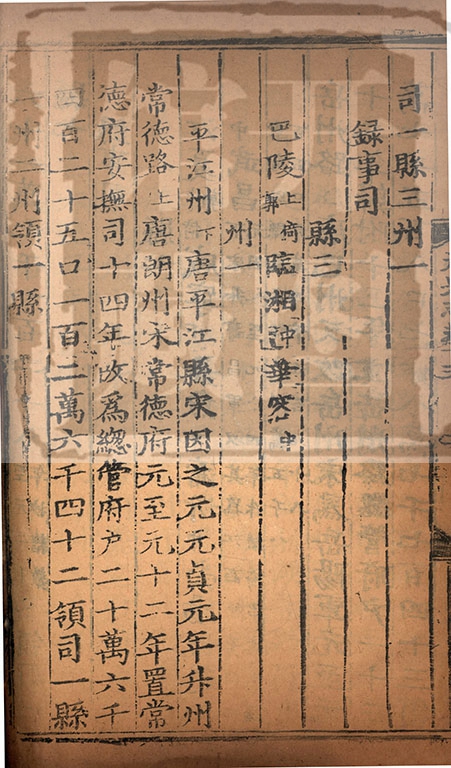 司一縣三州一
錄事司
縣三
巴陵上倚郭臨湘中華容中
州一
平江州下唐平江縣宋因之元元貞元年升州
常德路上唐朗州宋常德府元至元十二年置常
德府安撫司十四年改爲總管府户二十萬六千
四百二十五口一百二萬六千四十二領司一縣
一州二州領一縣